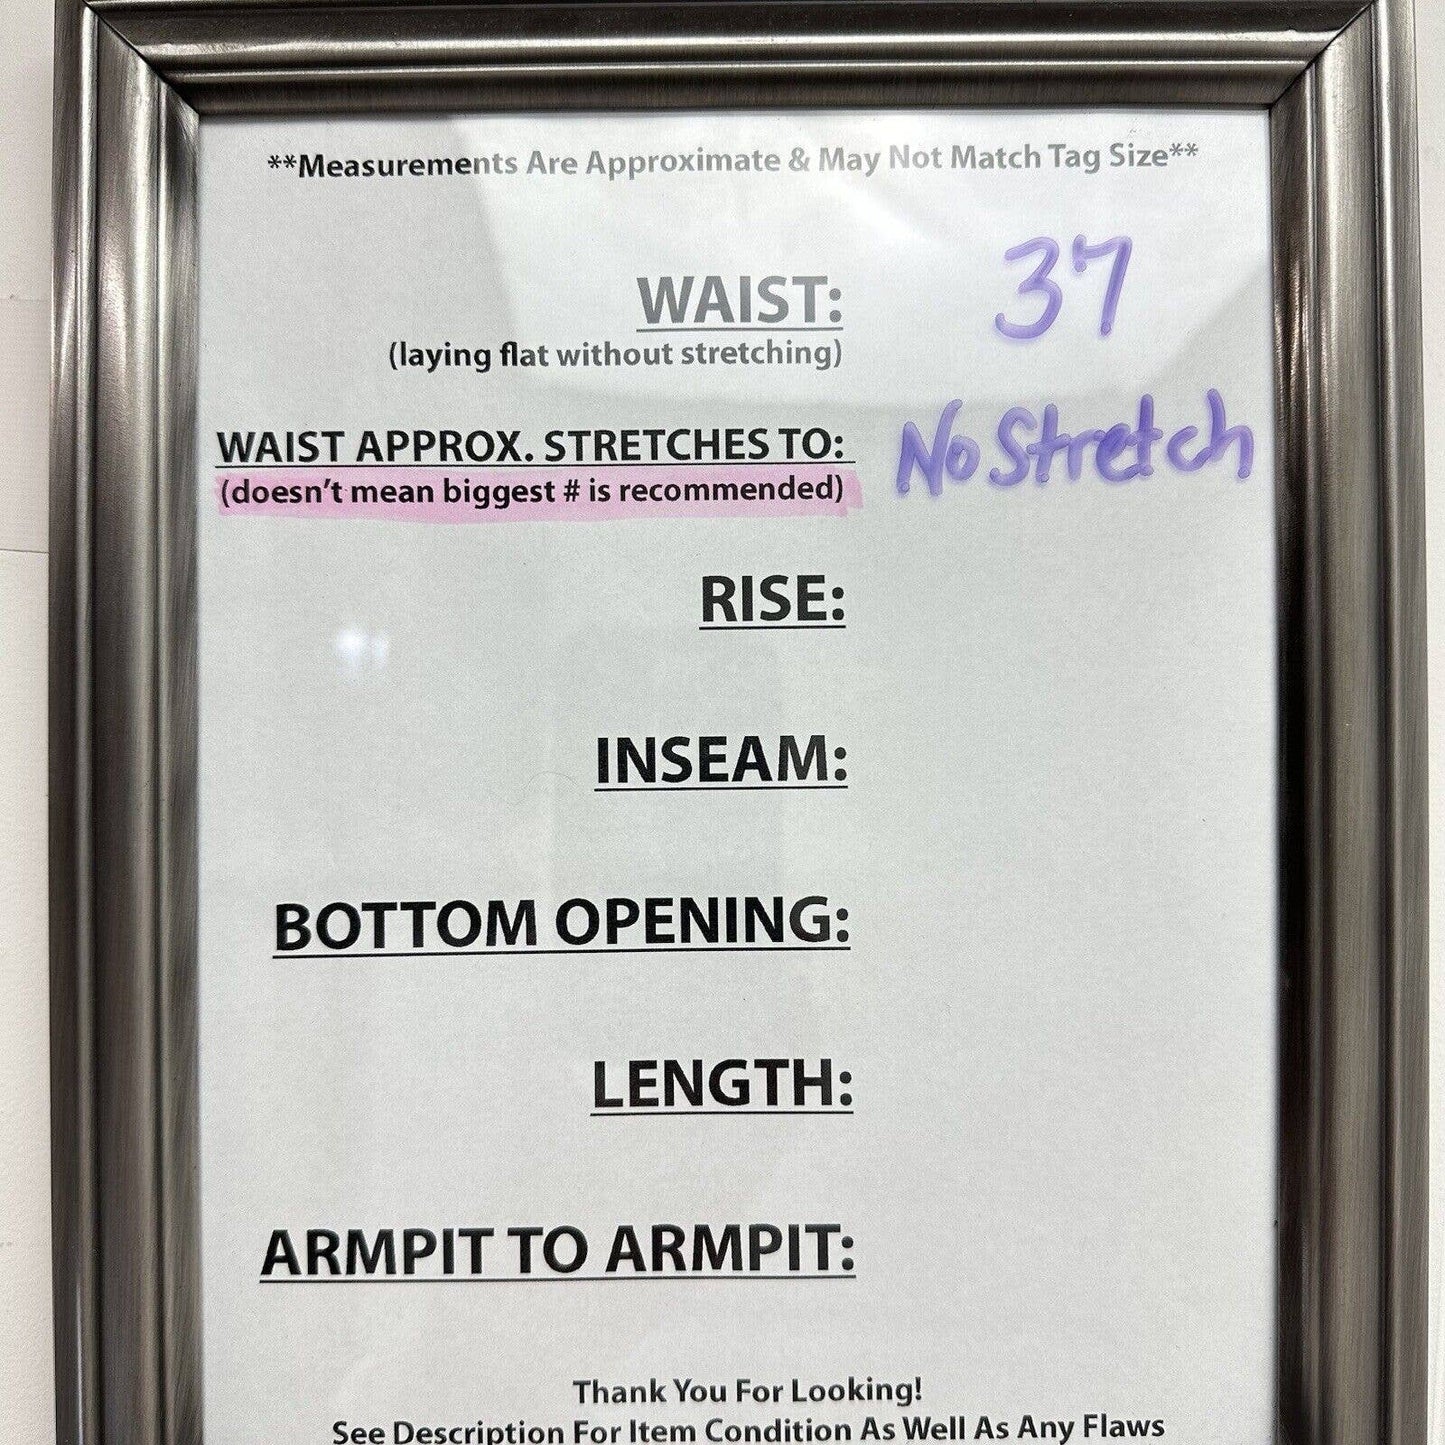 **Measurements Are Approximate & May Not Match Tag Size**
WAIST: 37
(laying flat without stretching)
WAIST APPROX. STRETCHES TO: No Stretch
(doesn't mean biggest # is recommended)
RISE:
INSEAM:
BOTTOM OPENING:
LENGTH:
ARMPIT TO ARMPIT:
Thank You For Looking!
See Description For Item Condition As Well As Any Flaws